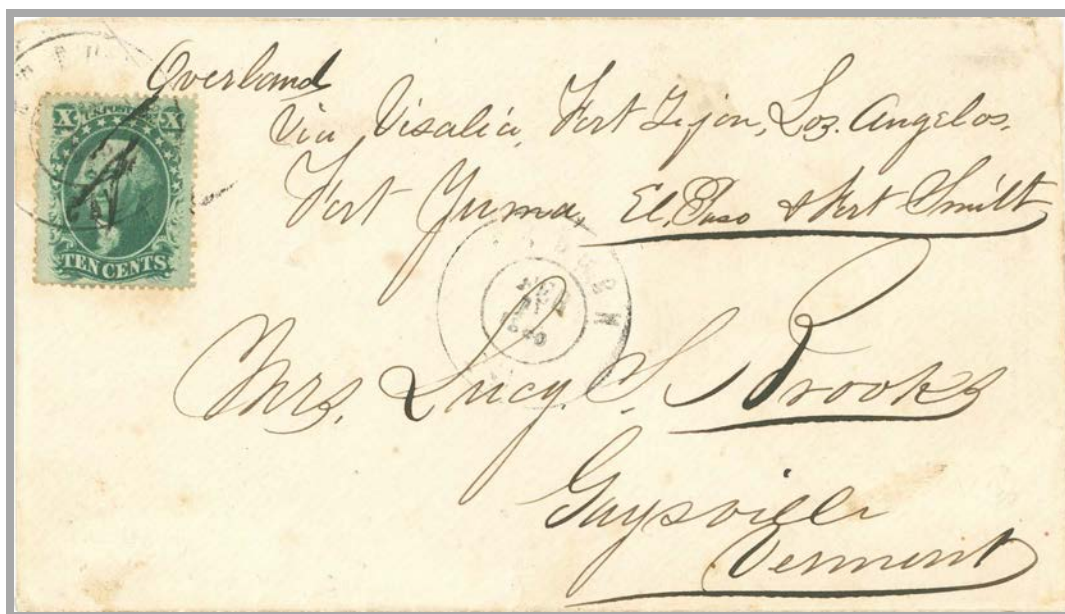 Overland
Via Visalia, Fort Tejon, Los. Angelos.
Fort Yuma, El. Paso & Fort Smith
X U.S. POSTAGE X
TEN CENTS
Mrs. Lucy. S. Brooks
Gaysville
Vermont